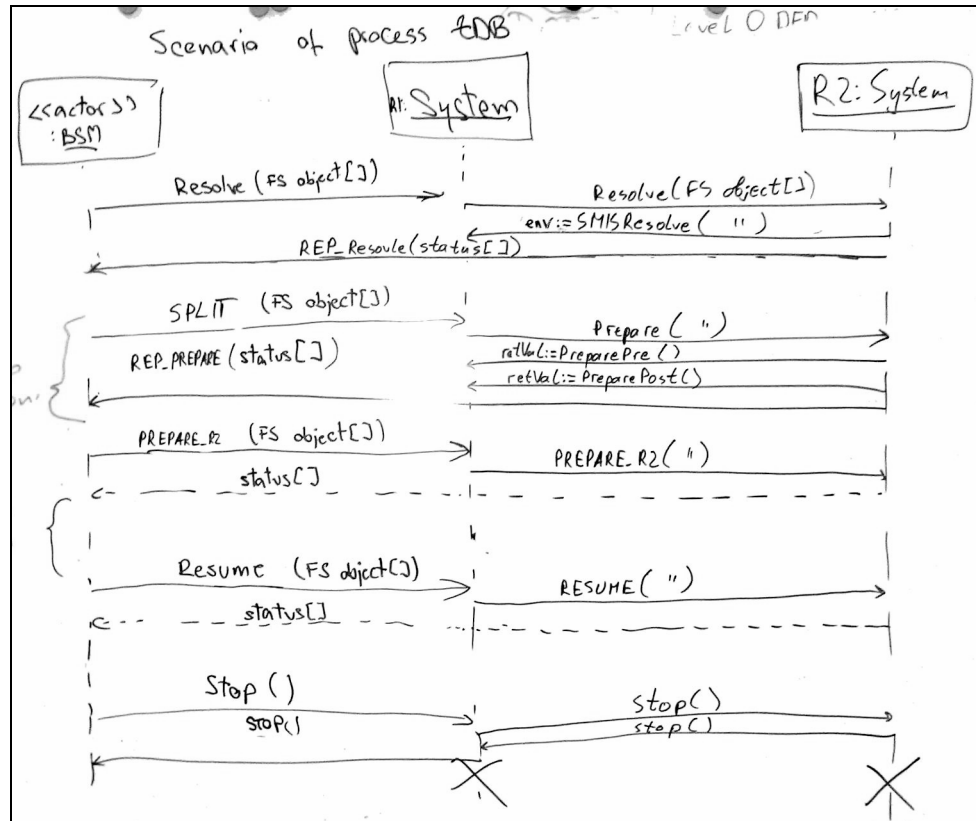 Scenario of process tDB
Level 0 DFD
<<actor>>
: BSM
R1: System
R2: System
Resolve (FS object[])
Resolve (FS object[])
env:= SMISResolve ( " )
REP_Resovle(status[])
SPLIT (FS object[])
Prepare ( " )
REP_PREPARE (status[])
retVal:=PreparePre ()
retVal:= PreparePost()
PREPARE_R2 (FS object[])
PREPARE_R2( " )
status[]
Resume (FS object[])
RESUME( " )
status[]
Stop ()
stop()
STOP()
stop()